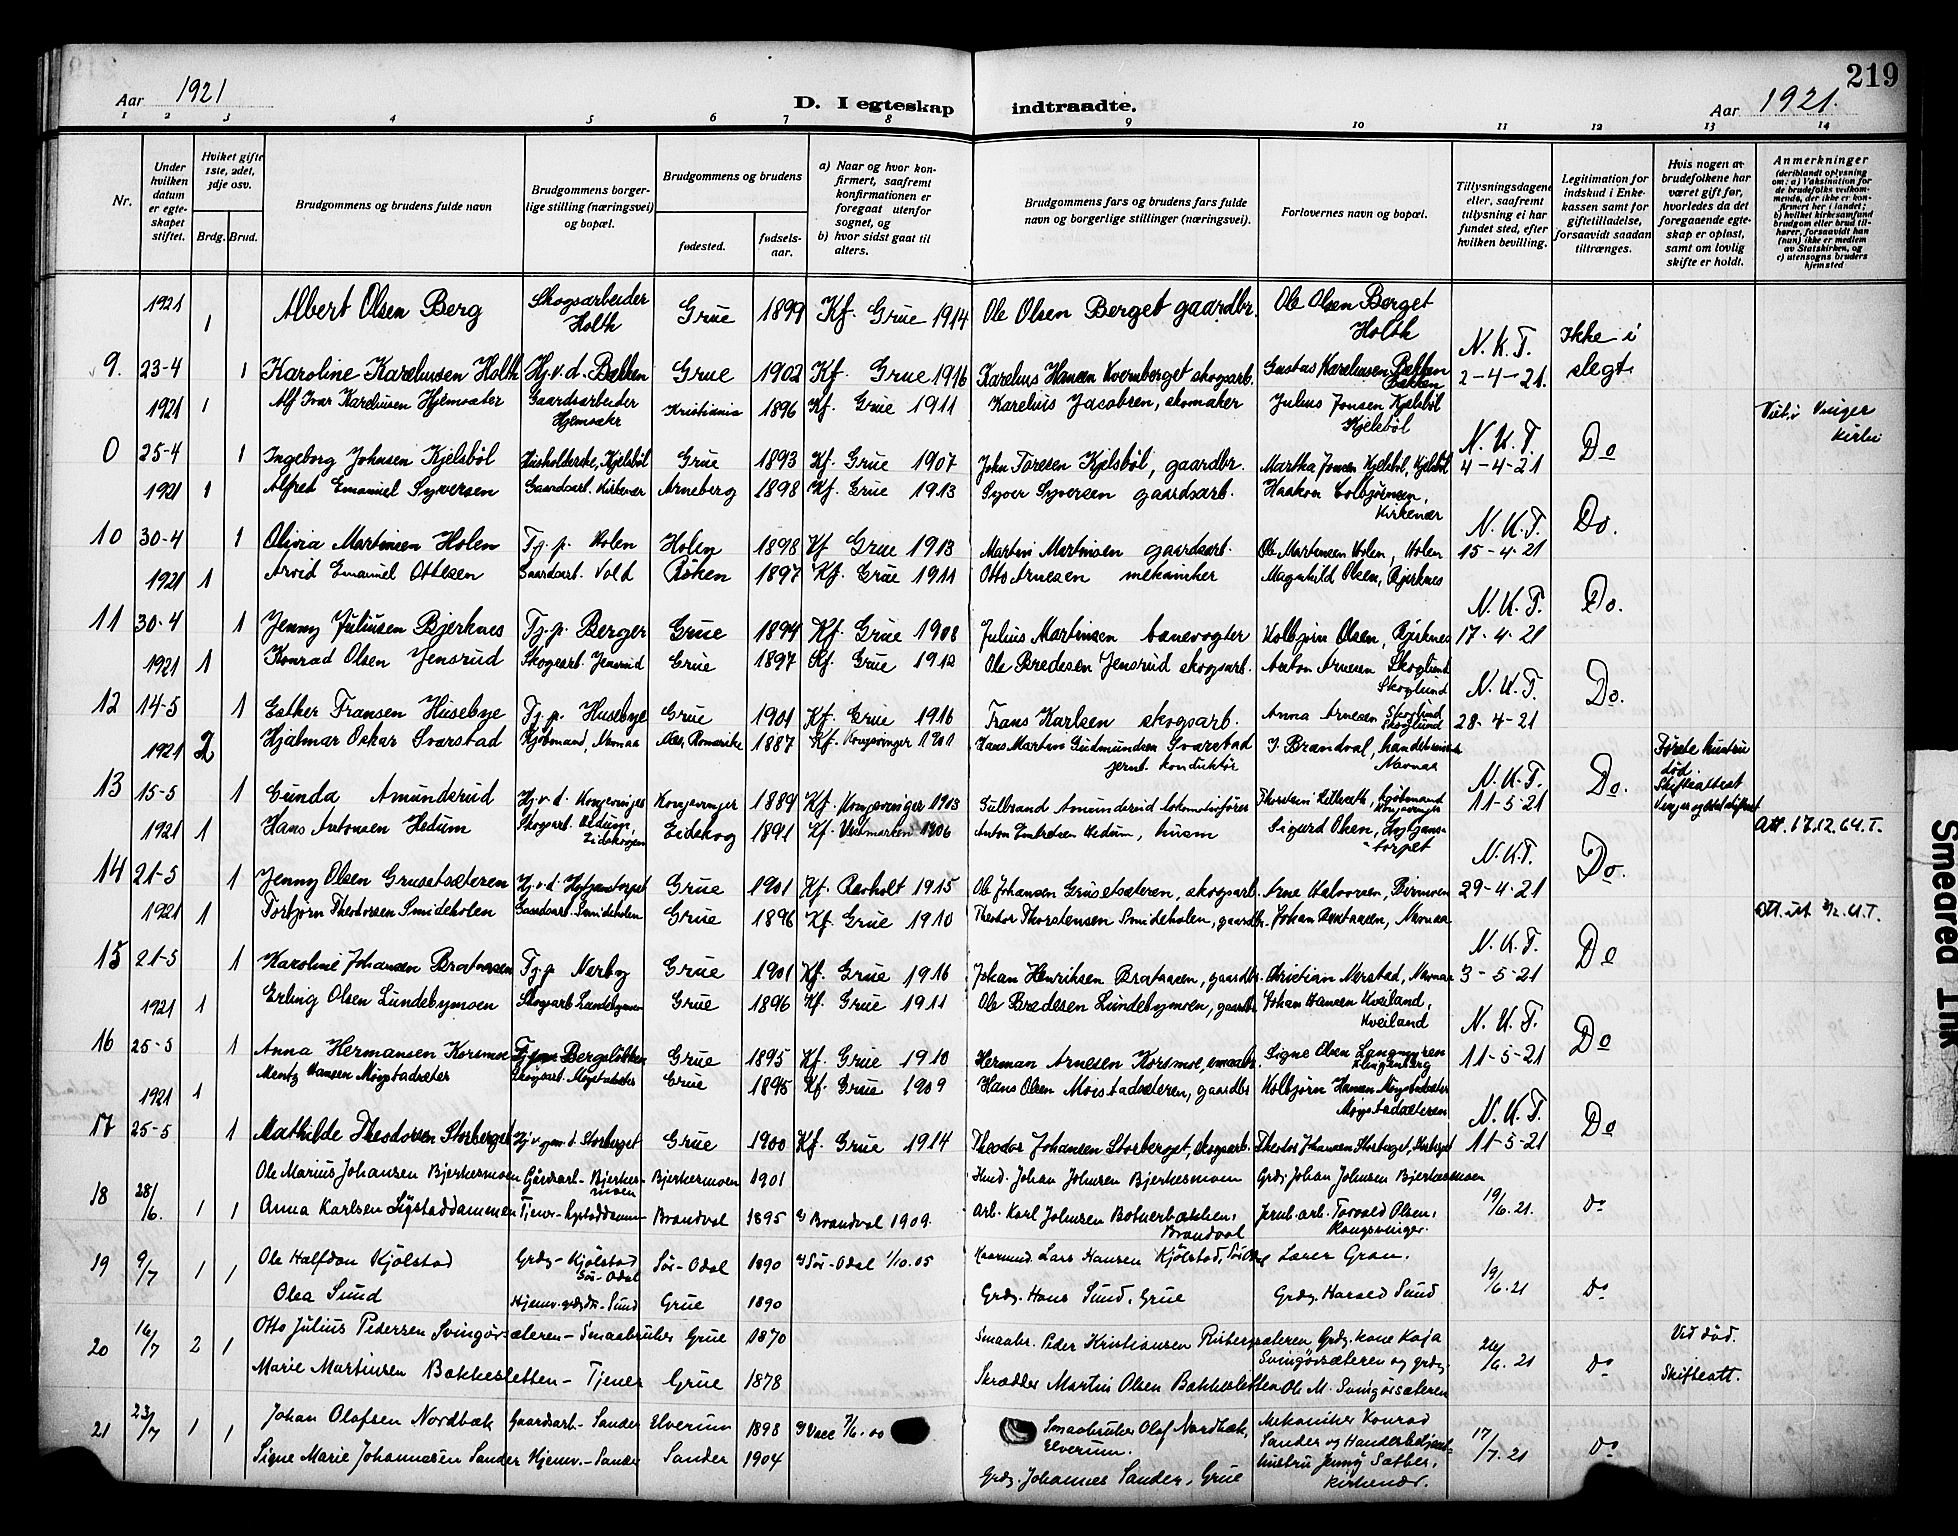 219
Aar 1921
D. I egteskap indtraadte.
Aar 1921.
1 2 3 4 5 6 7 8 9 10 11 12 13 14
Nr.
Under hvilken datum er egteskapet stiftet.
Hvilket gifte 1ste, 2det, 3dje osv.
Brdg. Brud.
Brudgommens og brudens fulde navn
Brudgommens borgerlige stilling (næringsvei) og bopæl.
Brudgommens og brudens
fødested.
fødselsaar.
a) Naar og hvor konfirmert, saafremt konfirmationen er foregaat utenfor sognet, og
b) hvor sidst gaat til alters.
Brudgommens fars og brudens fars fulde navn og borgerlige stillinger (næringsvei).
Forlovernes navn og bopæl.
Tillysningsdagene eller, saafremt tillysning ei har fundet sted, efter hvilken bevilling.
Legitimation for indskud i Enkekassen samt for giftetilladelse, forsaavidt saadan tiltrænges.
Hvis nogen av brudefolkene har været gift før, hvorledes da det foregaaende egteskap er opløst, samt om lovlig skifte er holdt.
Anmerkninger
(deriblandt oplysning om: a) Vaksination for de brudefolks vedkommende, der ikke er konfirmert her i landet;
b) hvilket kirkesamfund brudgom eller brud tilhører, forsaavidt han (hun) ikke er medlem av Statskirken, og
c) utensogns bruders hjemsted
1921 1 Albert Olsen Berg Skogsarbeider Holth Grue 1899 Kf. Grue 1914 Ole Olsen Berget gaardbr. Ole Olsen Berget Holth N.K.T. Ikke i
9. 23-4 1 Karoline Kareliusen Holth Hj.v.d. Bekken Grue 1902 Kf. Grue 1916 Karelius Hansen Kvernberget skogsarb. Gustav Kareliusen Bekken Bekken 2-4-21. slegt.
1921 1 Alf Ivar Kareliusen Hjemsæter Gaardsarbeider Kristiania 1896 Kf. Grue 1911 Karelius Jacobsen, skomaker Julius Jonsen Kjelsböl Kjelsböl N.K.T. Viet i Vinger kirke
0 25-4 1 Ingeborg Johnsen Kjelsböl Husholderske, Kjelsböl Grue 1893 Kf. Grue 1907 John Toresen Kjelsböl, gaardbr. Martha Jonsen Kjelsböl, Kjelsböl 4-4-21 Do
1921 1 Alfred Emanuel Syversen Gaardsarb. Kirkenær Arneberg 1898 Kf. Grue 1913 Syver Syversen gaardsarb. Haakon Colbjørnsen, Kirkenær N.K.T.
10 30-4 1 Olivia Martinsen Holen Tj.p. Holen Holen 1898 Kf Grue 1913 Martin Martinsen gaardsarb. Ole Martinsen Holen, Holen 15-4-21 Do.
1921 1 Arvid Emanuel Ottesen Gaardsarb. Vold Röken 1897 Kf. Grue 1911 Otto Arnesen mekaniker Magnhild Olsen, Bjerknes N.K.T.
11 30-4 1 Jenny Juliusen Bjerknes Tj.p. Berger Grue 1894 Kf. Grue 1908 Julius Martinsen banevogter Kolbjørn Olsen, Bjerknes 17-4-21 Do.
1921 1 Konrad Olsen Jensrud Skogsarb. Jensrud Grue 1897 Kf. Grue 1912 Ole Bredesen Jensrud skogsarb. Anton Arnesen Skoglund Skoglund N.K.T.
12 14-5 1 Esther Fransen Husebye Tj.p. Husebye Grue 1901 Kf. Grue 1916 Frans Karlsen skogsarb. Anna Arnesen Skoglund Skoglund 28-4-21 Do.
1921 2 Hjalmar Oskar Svarstad Kjöbmand, Namnaa Nes, Romerike 1887 Kf. Kongsvinger 1901 Hans Martin Gudmundsen Svarstad jernb. konduktör J. Brandval, Namnaa N.K.T. Første hustru død.
13 15-5 1 Gunda Amundsrud Hj.v.d. Kongsvinger Kongsvinger 1889 Kf. Kongsvinger 1903 Gulbrand Amundsrud lokomotivfører Thorstein kjøbmand Kongsvinger 11-5-21 Do. Skifteattest
1921 1 Hans Antonsen Hedum Skogsarb. Hedum, Eidskogen Eidskog 1891 Kf. Vestmarken 1906 Anton Embretsen Hedum, husm Sigurd Olsen, N.K.T. Att. 17.12.64.T.
14 21-5 1 Jenny Olsen Grusetsæteren Hj.v.d. Grue 1901 Kf. Revholt 1915 Ole Johansen Grusetsæteren, skogsarb. Arne Halvorsen, 29-4-21 Do.
1921 1 Torbjørn Theodorsen Smideholen Gaardsarb. Smideholen Grue 1896 Kf. Grue 1910 Theodor Thorstensen Smideholen, gaardbr. Johan Brataasen, Namnaa N.K.T.
15 21-5 1 Karoline Johansen Brataasen Tj.p. Nerby Grue 1901 Kf. Grue 1916 Johan Henriksen Brataasen, gaardbr. Christian Nerstad, Namnaa 3-5-21 Do
1921 1 Erling Olsen Lundebymoen Skogsarb Lundebymoen Grue 1896 Kf. Grue 1911 Ole Bredesen Lundebymoen, gaardbr. Johan Hansen Kveiland, Kveiland N.K.T.
16 25-5 1 Anna Hermansen Korsmoe Bergslökken Grue 1895 Kf. Grue 1910 Herman Arnesen Korsmoe, smaabr. Signe Olsen Langmyren Klingenberg 11-5-21 Do
1921 1 Mentz Hansen Møystadsæter Skogsarb. Møystadsæter Grue 1895 Kf. Grue 1909 Hans Olsen Moistadsæteren, gaardbr. Kolbjørn Hansen Møystadsæter Møystadsæteren N.K.T.
17 25-5 1 Mathilde Theodorsen Storberget Storberget Grue 1900 Kf. Grue 1914 Theodor Johansen Storberget, skogsarb. Theodor Johansen Storberget, Storberget 11-5-21 Do
18 28/6. 1 Ole Marius Johansen Bjerkesmoen Gårdsarb- Bjerkesmoen Bjerkesmoen 1901 Johan Johnsen Bjerkesmoen Grdbr. Johan Johnsen Bjerkesmoen 19/6.21. Do
1 Anna Karlsen Sigstaddammen Brandval 1895 Brandval 1909. Arb. Karl Johnsen Botnerbakken, Brandval Jernb.arb. Torvald Olsen, Kongsvinger.
19 9/7 1 1 Ole Halfdan Kjölstad Grdbr- Kjölstad Sör-Odal Sör-Odal 1890 Sör-Odal 1/10.05 Lars Hansen Kjölstad, Lærer Gran. 19/6.21 Do
Olea Sund Hjemv. Sund Grue 1890 Grdbr. Hans Sund, Grue Grdbr Harald Sund
20 16/7 2 1 Otto Julius Pedersen Svingörsæteren- Smaabruker Grue 1870 Smaabr. Peder Kristiansen Risbergsæteren Grdbr.kone Kaja Svingörsæteren og grdbr 26/6.21 Do Ved död.
Marie Martinsen Bakkesletten- Tjener Grue 1878 Skrædder Martin Olsen Bakkesletten Ole M. Svingörsæteren Skifteatt.
21 23/7 1 1 Johan Olafsen Nordbæk Gaardsarb- Sander Elverum 1898 Smaabruker Olaf Nordbæk, Elverum. Mekaniker Konrad Sander og Handelsbetjent- 17/7.21 Do
Signe Marie Johannesen Sander Hjemv.- Sander Sander 1904 Grdbr. Johannes Sander, Grue hustru Jenny Sæther, Kirkenær.
Smeared Ink